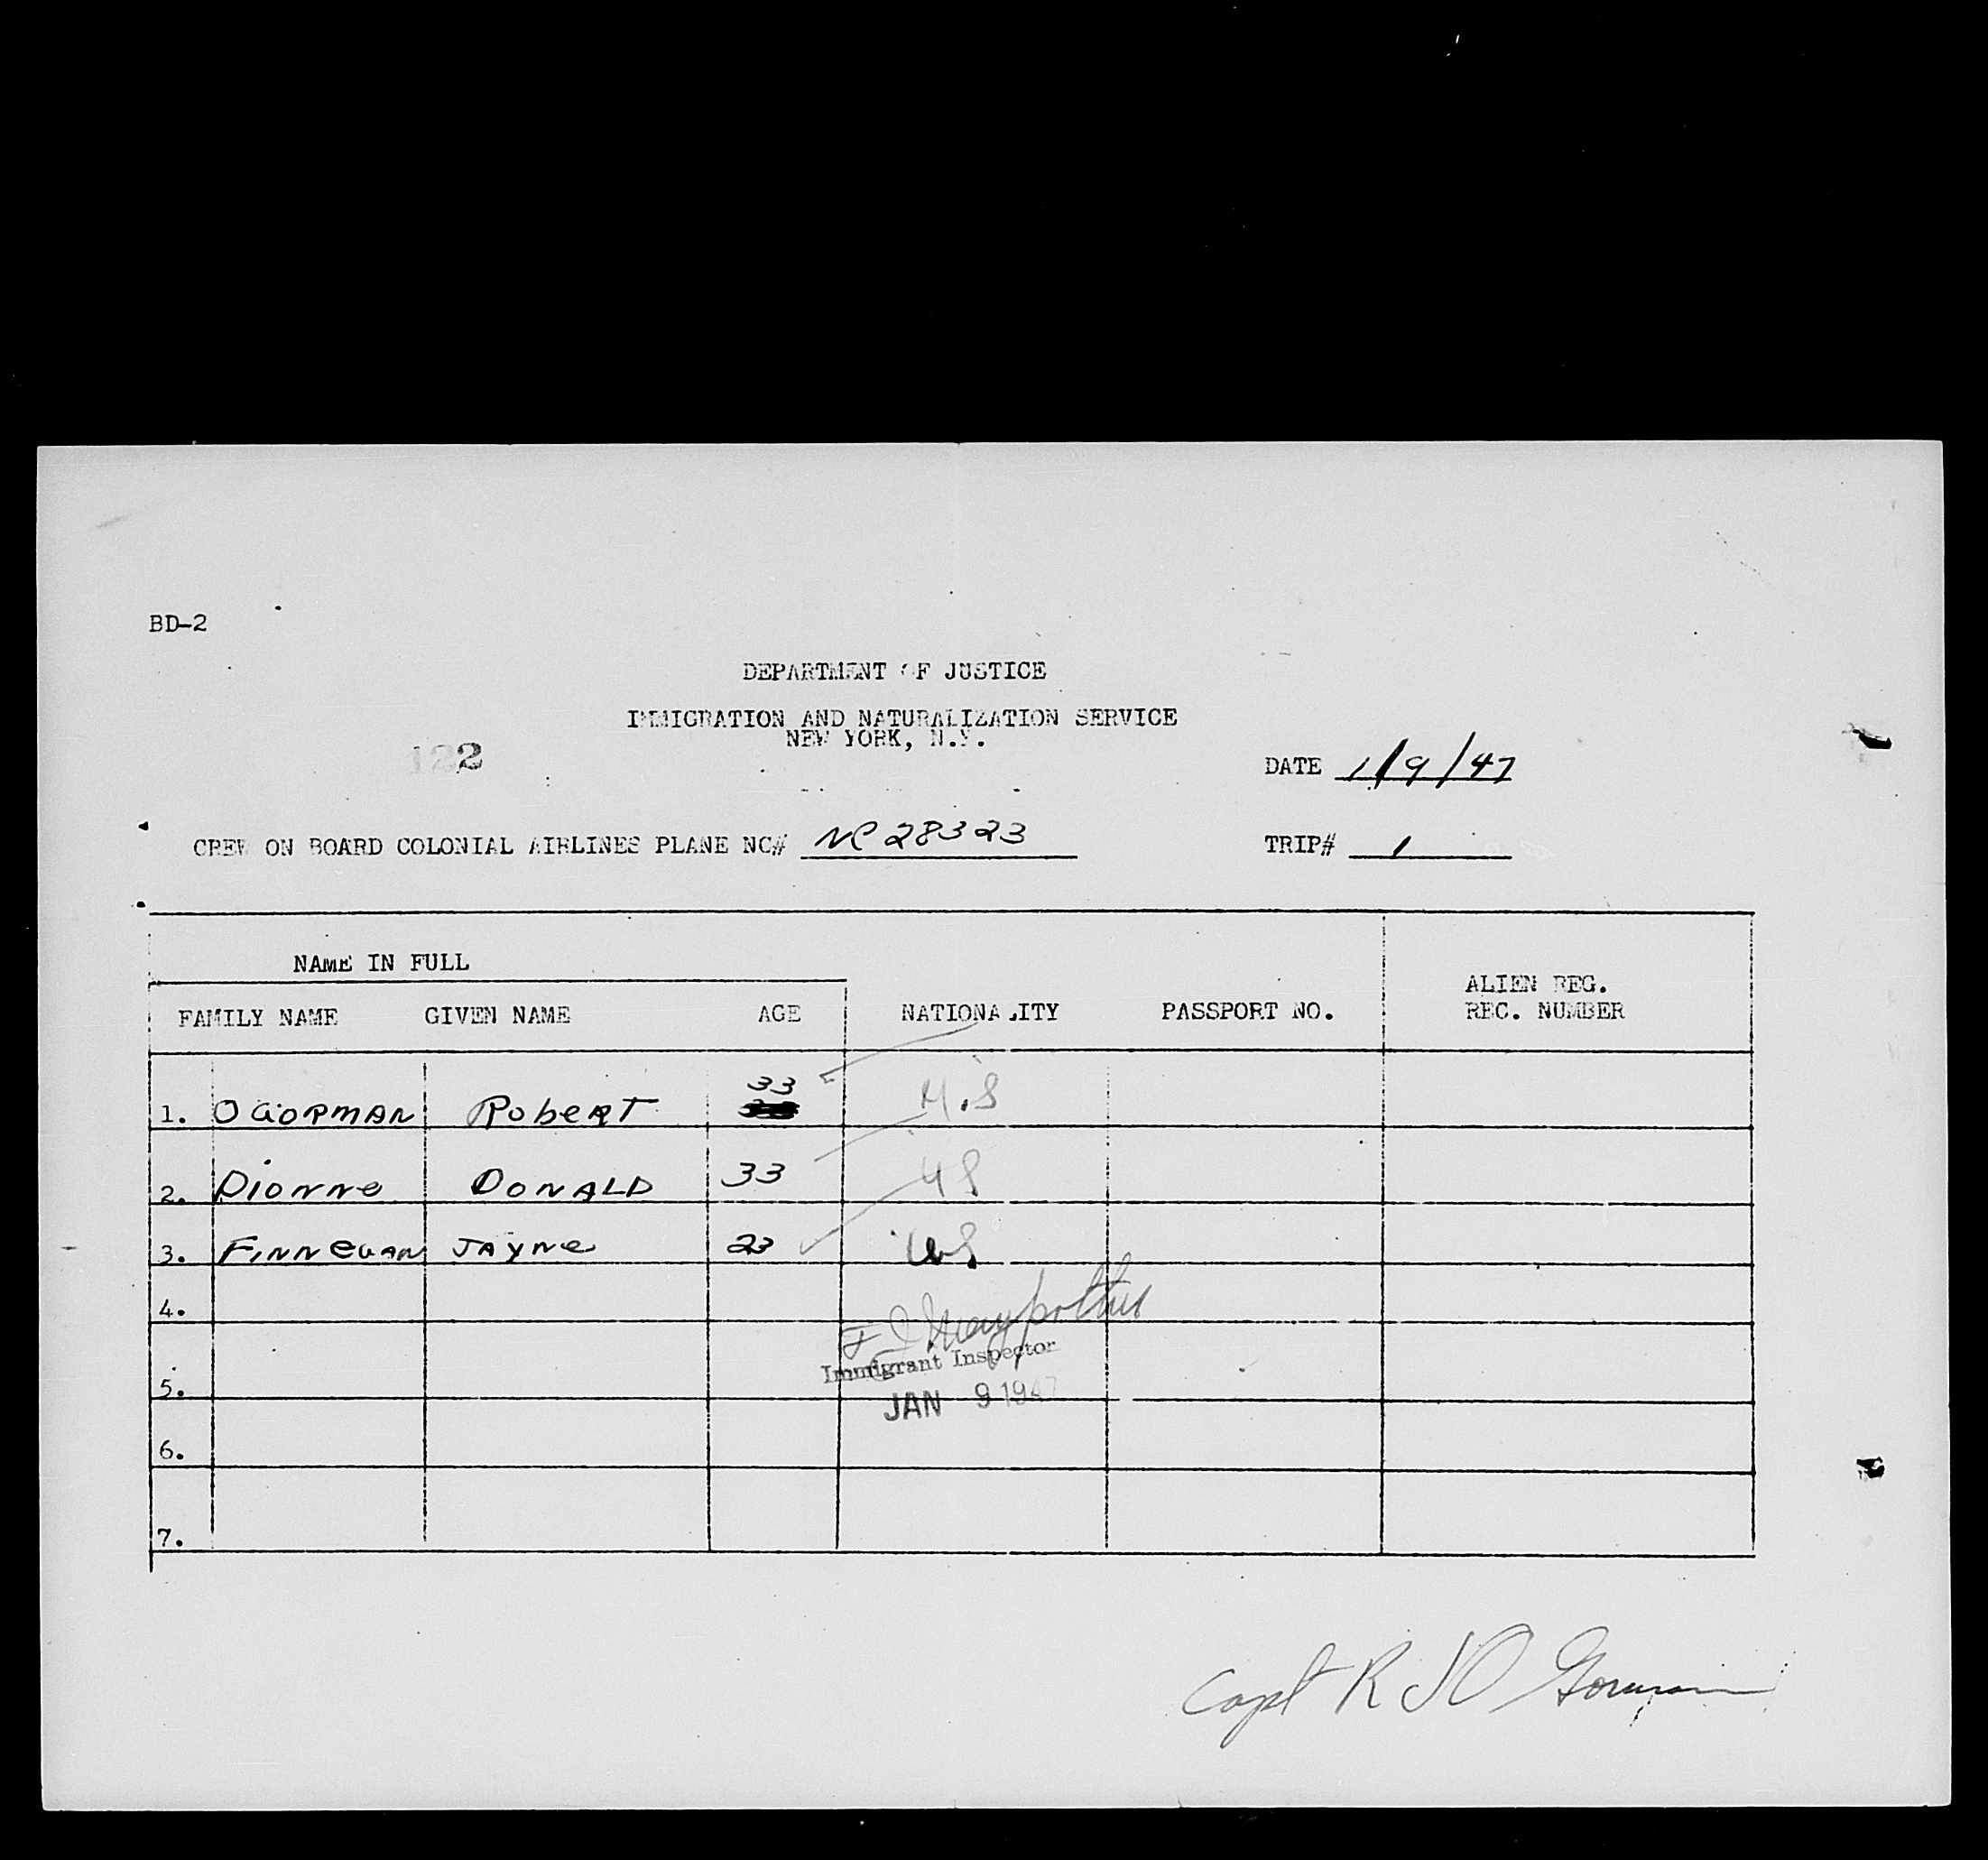 BD-2
DEPARTMENT OF JUSTICE
IMMIGRATION AND NATURALIZATION SERVICE
NEW YORK, N.Y.
122
DATE 1/9/47
CREW ON BOARD COLONIAL AIRLINES PLANE NC# NC 28323
TRIP# 1
NAME IN FULL
FAMILY NAME GIVEN NAME AGE NATIONALITY PASSPORT NO. ALIEN REG. REC. NUMBER
1. OGORMAN RobeRT 33 U.S
2. Dionne DONALD 33 US
3. FINNeGAN JAYNe 23 US
4.
Immigrant Inspector
5.
JAN 9 1947
6.
7.
Capt R J O Gorman